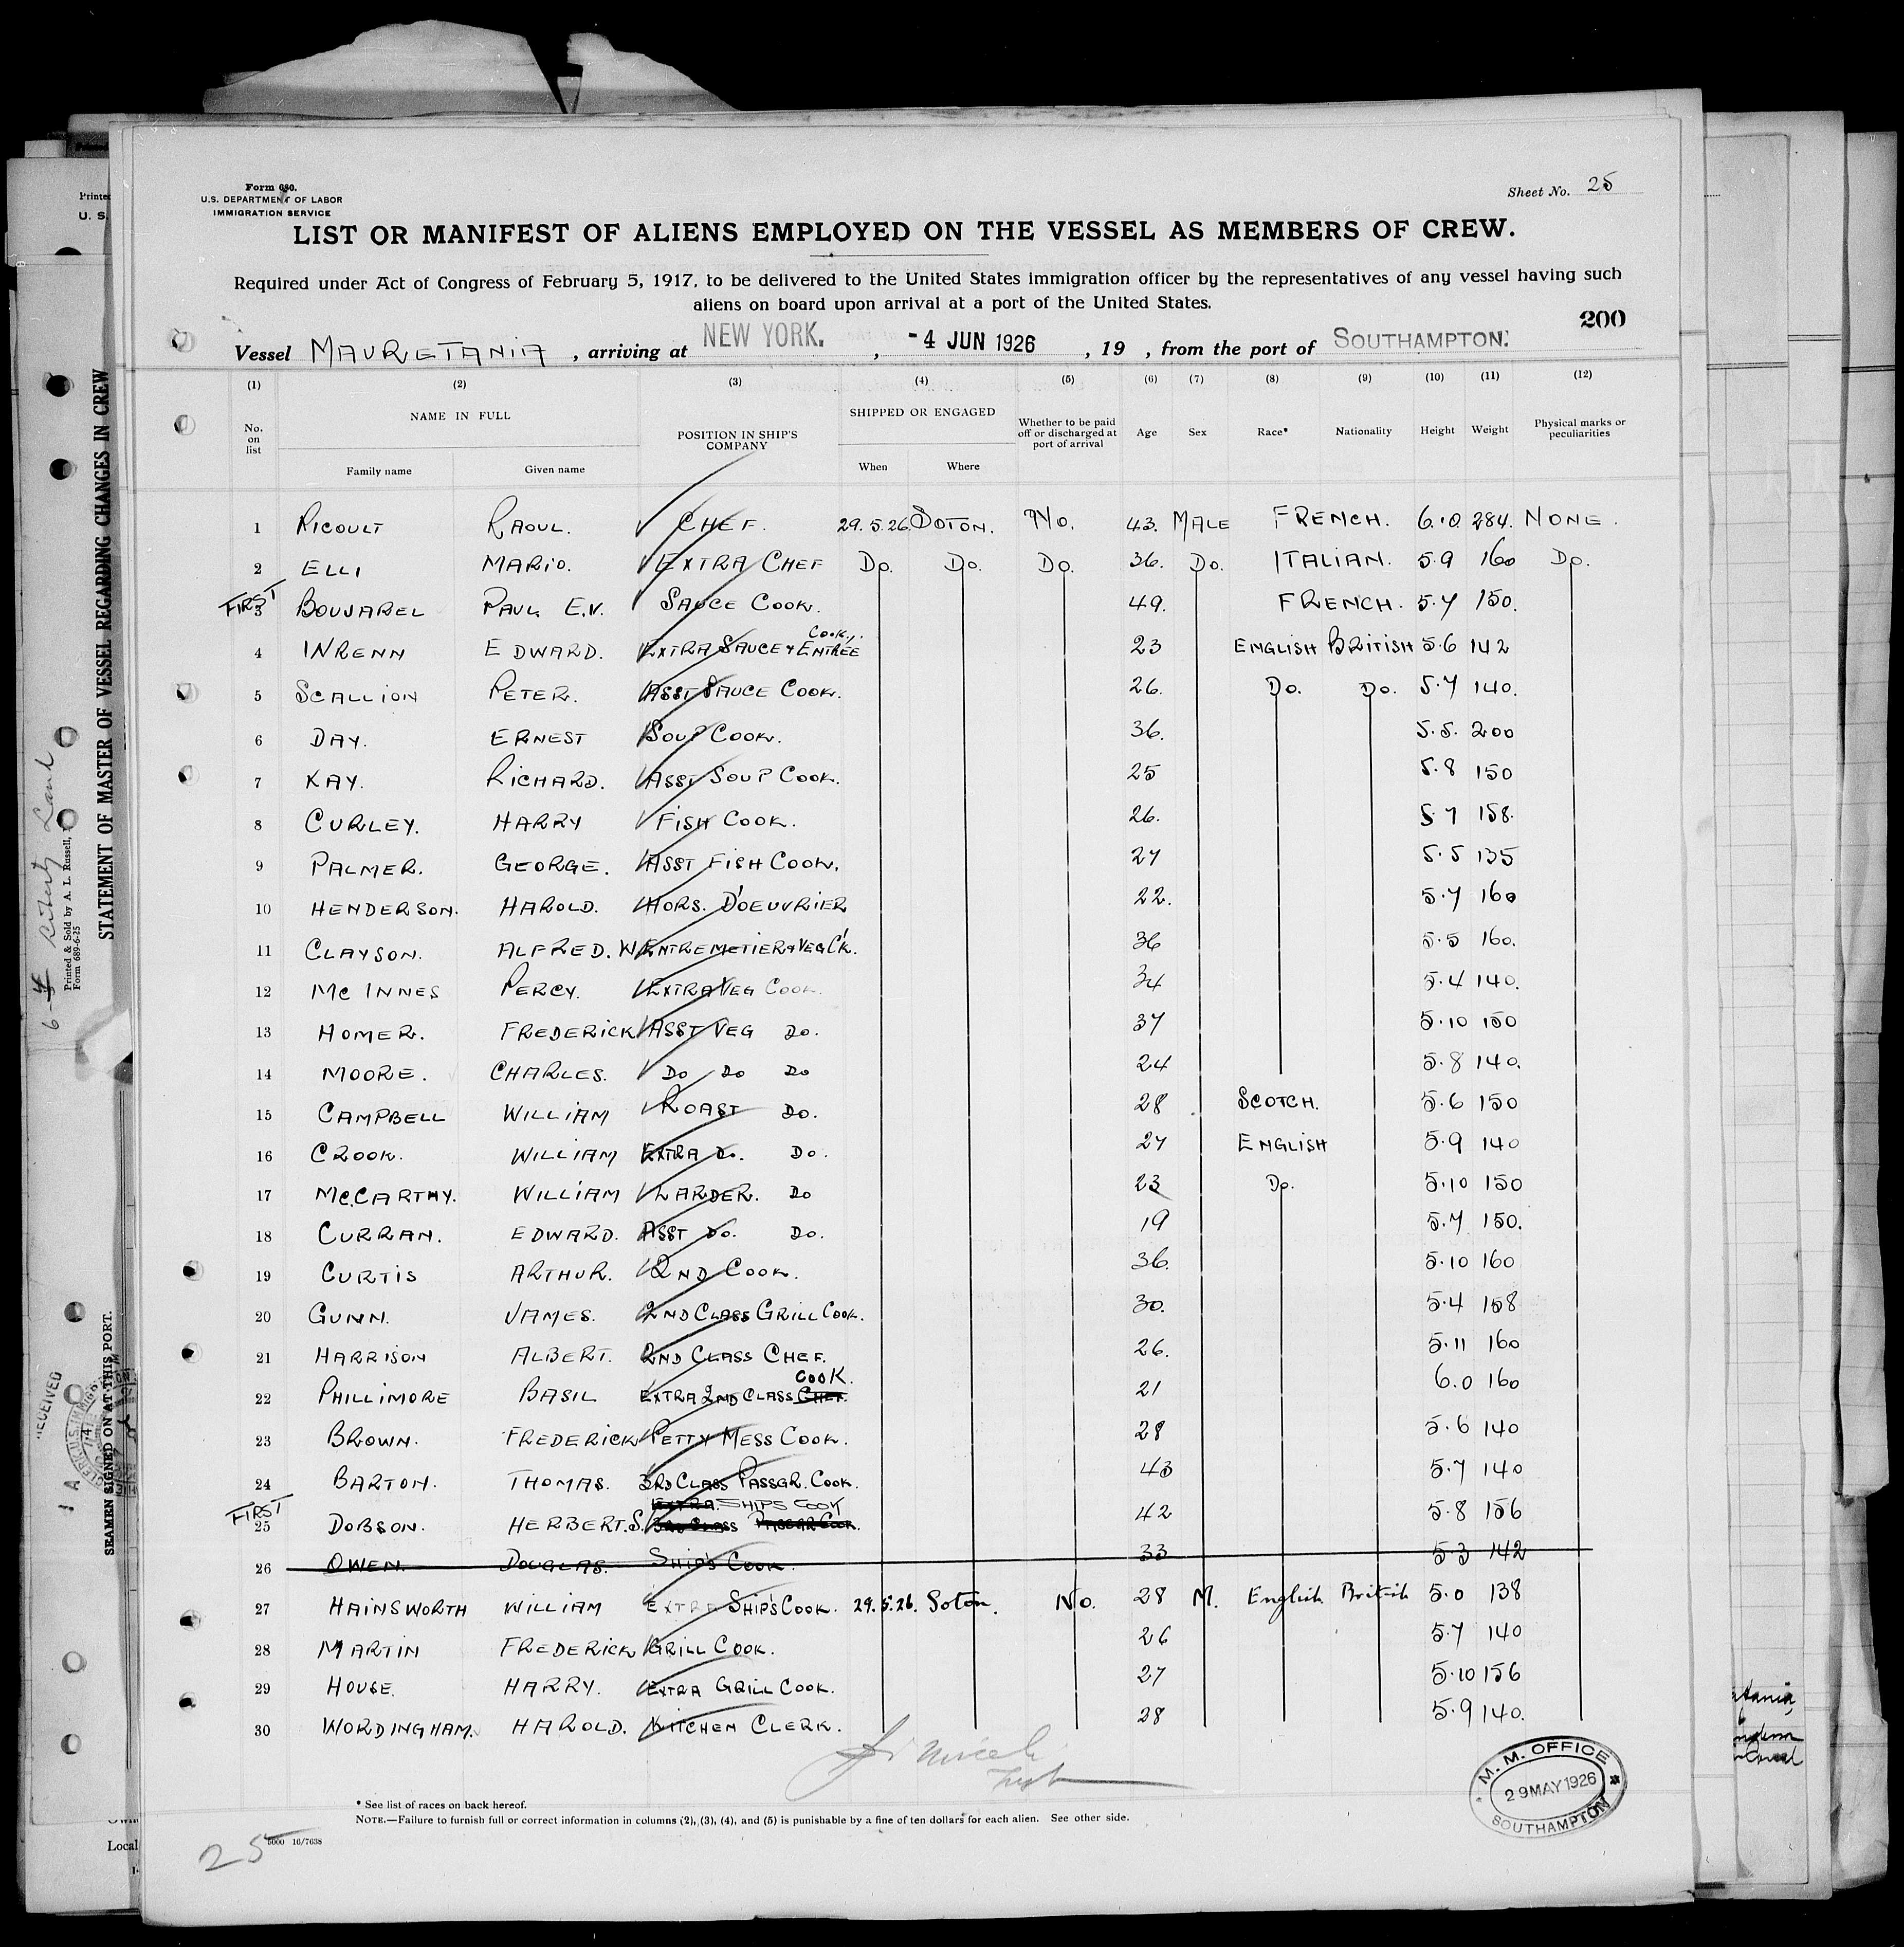 Form 680.
U.S. DEPARTMENT OF LABOR
IMMIGRATION SERVICE
Sheet No. 25
LIST OR MANIFEST OF ALIENS EMPLOYED ON THE VESSEL AS MEMBERS OF CREW.
Required under Act of Congress of February 5, 1917, to be delivered to the United States immigration officer by the representatives of any vessel having such
aliens on board upon arrival at a port of the United States.
200
Vessel MAURETANIA, arriving at NEW YORK., -4 JUN 1926, 19 , from the port of SOUTHAMPTON.
(1) (2) (3) (4) (5) (6) (7) (8) (9) (10) (11) (12)
No. on list NAME IN FULL Family name Given name POSITION IN SHIP'S COMPANY SHIPPED OR ENGAGED When Where Whether to be paid off or discharged at port of arrival Age Sex Race* Nationality Height Weight Physical marks or peculiarities
1 RICOULT RAOUL. CHEF. 29.5.26 SOTON. No. 43. MALE FRENCH. 6.0 284. NONE.
2 ELLI MARIO. EXTRA CHEF Do. Do. Do. 36. Do. ITALIAN. 5.9 160 Do.
FIRST
3 BOUJAREL PAUL E.V. SAUCE COOK. 49. FRENCH. 5.7 150.
4 INRENN EDWARD. EXTRA SAUCE & ENTRÉE COOK. 23 ENGLISH BRITISH 5.6 142
5 SCALLION PETER. ASST SAUCE COOK. 26. Do. Do. 5.7 140.
6 DAY. ERNEST SOUP COOK. 36. 5.5. 200
7 KAY. RICHARD. ASST SOUP COOK. 25 5.8 150
8 CURLEY. HARRY FISH COOK. 26. 5 7 158.
9 PALMER. GEORGE. ASST FISH COOK. 27 5.5 135
10 HENDERSON. HAROLD. HORS. D'OEUVRIER 22. 5.7 160
11 CLAYSON. ALFRED. W ENTREMETIER & VEG CK. 36 5.5 160.
12 MC INNES PERCY. EXTRA VEG COOK. 34 5.4 140.
13 HOMER. FREDERICK ASST VEG Do. 37 5.10 150
14 MOORE. CHARLES. Do Do Do 24 5.8 140.
15 CAMPBELL WILLIAM ROAST Do. 28 SCOTCH. 5.6 150
16 CROOK. WILLIAM EXTRA Do. Do. 27 ENGLISH 5.9 140
17 MC.CARTHY. WILLIAM LARDER. Do 23 Do. 5.10 150
18 CURRAN. EDWARD. ASST Do. Do. 19 5.7 150.
19 CURTIS ARTHUR. 2ND COOK. 36. 5.10 160
20 GUNN. JAMES. 2ND CLASS GRILL COOK. 30. 5.4 158
21 HARRISON ALBERT. 2ND CLASS CHEF. 26. 5.11 160
22 PHILLIMORE BASIL EXTRA 2ND CLASS CHEF. COOK. 21 6.0 160
23 BROWN. FREDERICK PETTY MESS COOK. 28 5.6 140
24 BARTON. THOMAS. 3RD CLASS PASSGR. COOK. 43 5.7 140
FIRST EXTRA. SHIPS COOK
25 DOBSON. HERBERT. S. 3RD CLASS PASSGR COOK. 42 5.8 156
26 OWEN. DOUGLAS. SHIP'S COOK. 33 5.3 142
27 HAINSWORTH WILLIAM EXTRA SHIP'S COOK. 29.5.26. Soton. No. 28 M. English British 5.0 138
28 MARTIN FREDERICK GRILL COOK. 26 5.7 140
29 HOUSE. HARRY. EXTRA GRILL COOK. 27 5.10 156
30 WORDINGHAM. HAROLD. KITCHEN CLERK. 28 5.9 140.
M. M. OFFICE
29 MAY 1926
SOUTHAMPTON
* See list of races on back hereof.
NOTE.—Failure to furnish full or correct information in columns (2), (3), (4), and (5) is punishable by a fine of ten dollars for each alien. See other side.
5000 16/7638
25
Printed
U. S.
STATEMENT OF MASTER OF VESSEL REGARDING CHANGES IN CREW
Printed & Sold by A. L. Russell,
Form 689-6-25
SEAMEN SIGNED ON AT THIS PORT.
RECEIVED
Local